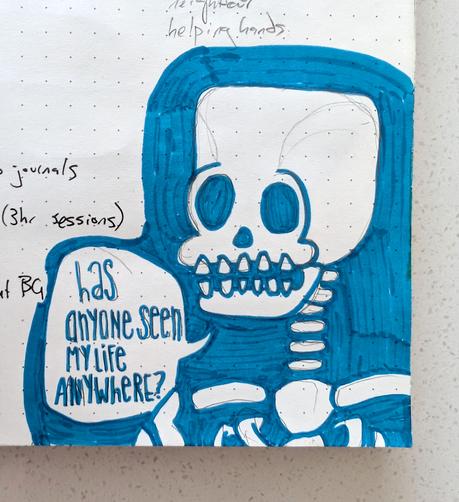 neighbour
helping hands
journals
(3hr sessions)
BG
has
anyone seen
my life
ANYWHERE?